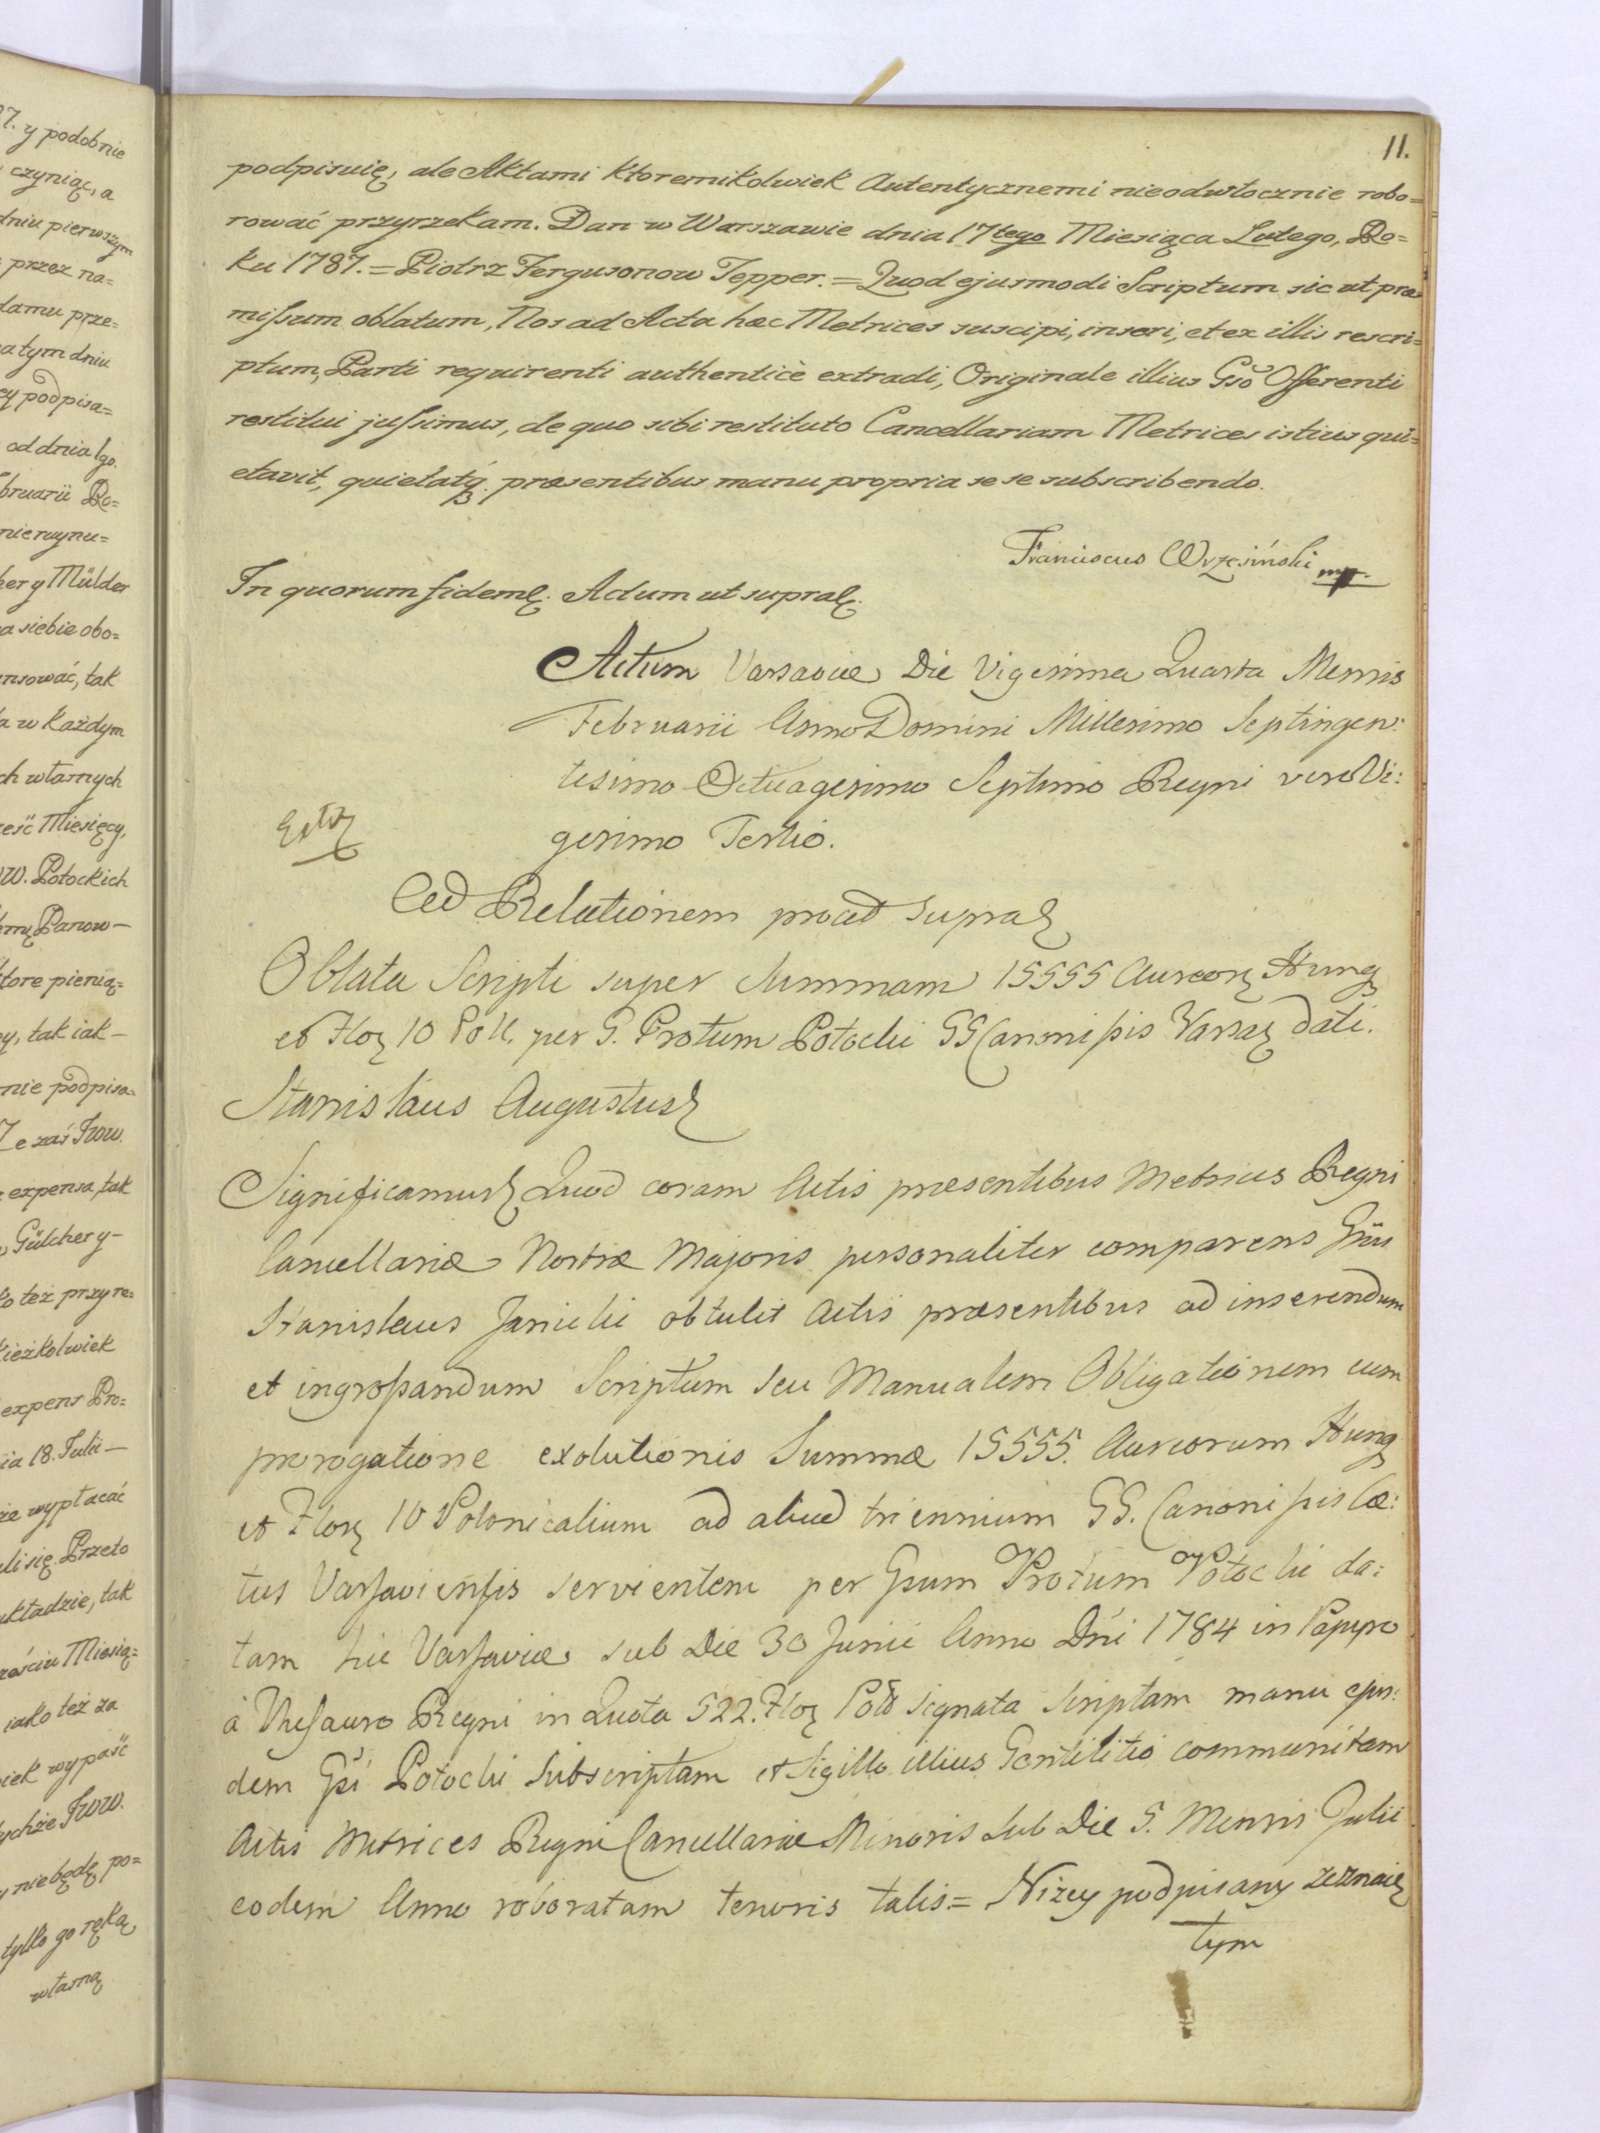 7. y podobnie
czyniąc, a
dniu pierwszym
przez na=
damu prze=
a tym dniu
ey podpisa=
od dnia 1go.
bruarii Ro=
nie wynu=
her y Mülder
a siebie obo=
ansować, tak
a w każdym
ch własnych
eść Miesięcy,
W. Potockich
Panow—
tore pienią=
ey, tak iak—
nie podpisa=
Ze zaś JWW.
expensa, tak
Gülcher y—
ko też przyre=
kieżkolwiek
expens Pro=
ia 18. Julii—
ie wypłacać
li się. Przeto
układzie, tak
ześciu Miesią=
iako też za
iek wypaść
tychże JWW.
y nie będę po=
tylko go ręką
własną
11.
podpisuię, ale Aktami ktoremikolwiek Autentycznemi nieodwłocznie robo=
rować przyrzekam. Dan w Warszawie dnia 17tego Miesiąca Lutego, Ro=
ku 1787. = Piotrz Fergusonow Tepper. = Quod ejusmodi Scriptum sic ut præ
missum oblatum, Nos ad Acta hæc Metrices suscipi, inseri, et ex illis rescri=
ptum, Parti requirenti authenticè extradi, Originale illius Gső Offerenti
restitui jussimus, de quo sibi restituto Cancellariam Metrices istius qui=
etavit, quietatq. præsentibus manu propria se se subscribendo.
Franciscus Wrzesiński mp.
In quorum fidem. Actum ut supra.
Actum Varsaviæ Die Vigesima Quarta Mensis
Februarii Anno Domini Millesimo Septingen:
tesimo Octuagesimo Septimo Regni vero Vi:
gesimo Tertio.
Extr
Ad Relationem procd supra
Oblata Scripti super Summam 15555 Aureor Hung
et Flor 10 Poll. per G. Protum Potocki GG Canonissis Varsav dati.
Stanislaus Augustus
Significamus Quod coram Actis præsentibus Metrices Regni
Cancellariæ Nostræ Majoris personaliter comparens Gnus
Stanislaus Janicki obtulit Actis præsentibus ad inserendum
et ingrossandum Scriptum seu Manualem Obligationem cum
prorogatione exolutionis Summæ 15555. Aureorum Hung
et Flor 10 Polonicalium ad aliud triennium GG. Canonissis Cæ:
tus Varsaviensis servientem per Gsum Protum Potocki da:
tam hic Varsaviæ sub Die 30 Junii Anno Dni 1784 in Papyro
à Thesauro Regni in Quota 522. Flor Poll signata scriptam manu ejus:
dem Gsi Potocki subscriptam et Sigillo illius Gentilitio communitam
Actis Metrices Regni Cancellariæ Minoris sub Die 5. Mensis Julii
eodem Anno roboratam tenoris talis = Niżey podpisany zeznaię
tym